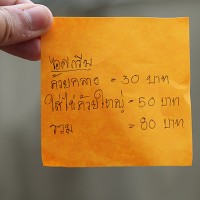 ไอศกรีม
ถ้วยกลาง = 30 บาท
ใส่ไข่ถ้วยใหญ่ = 50 บาท
รวม = 80 บาท